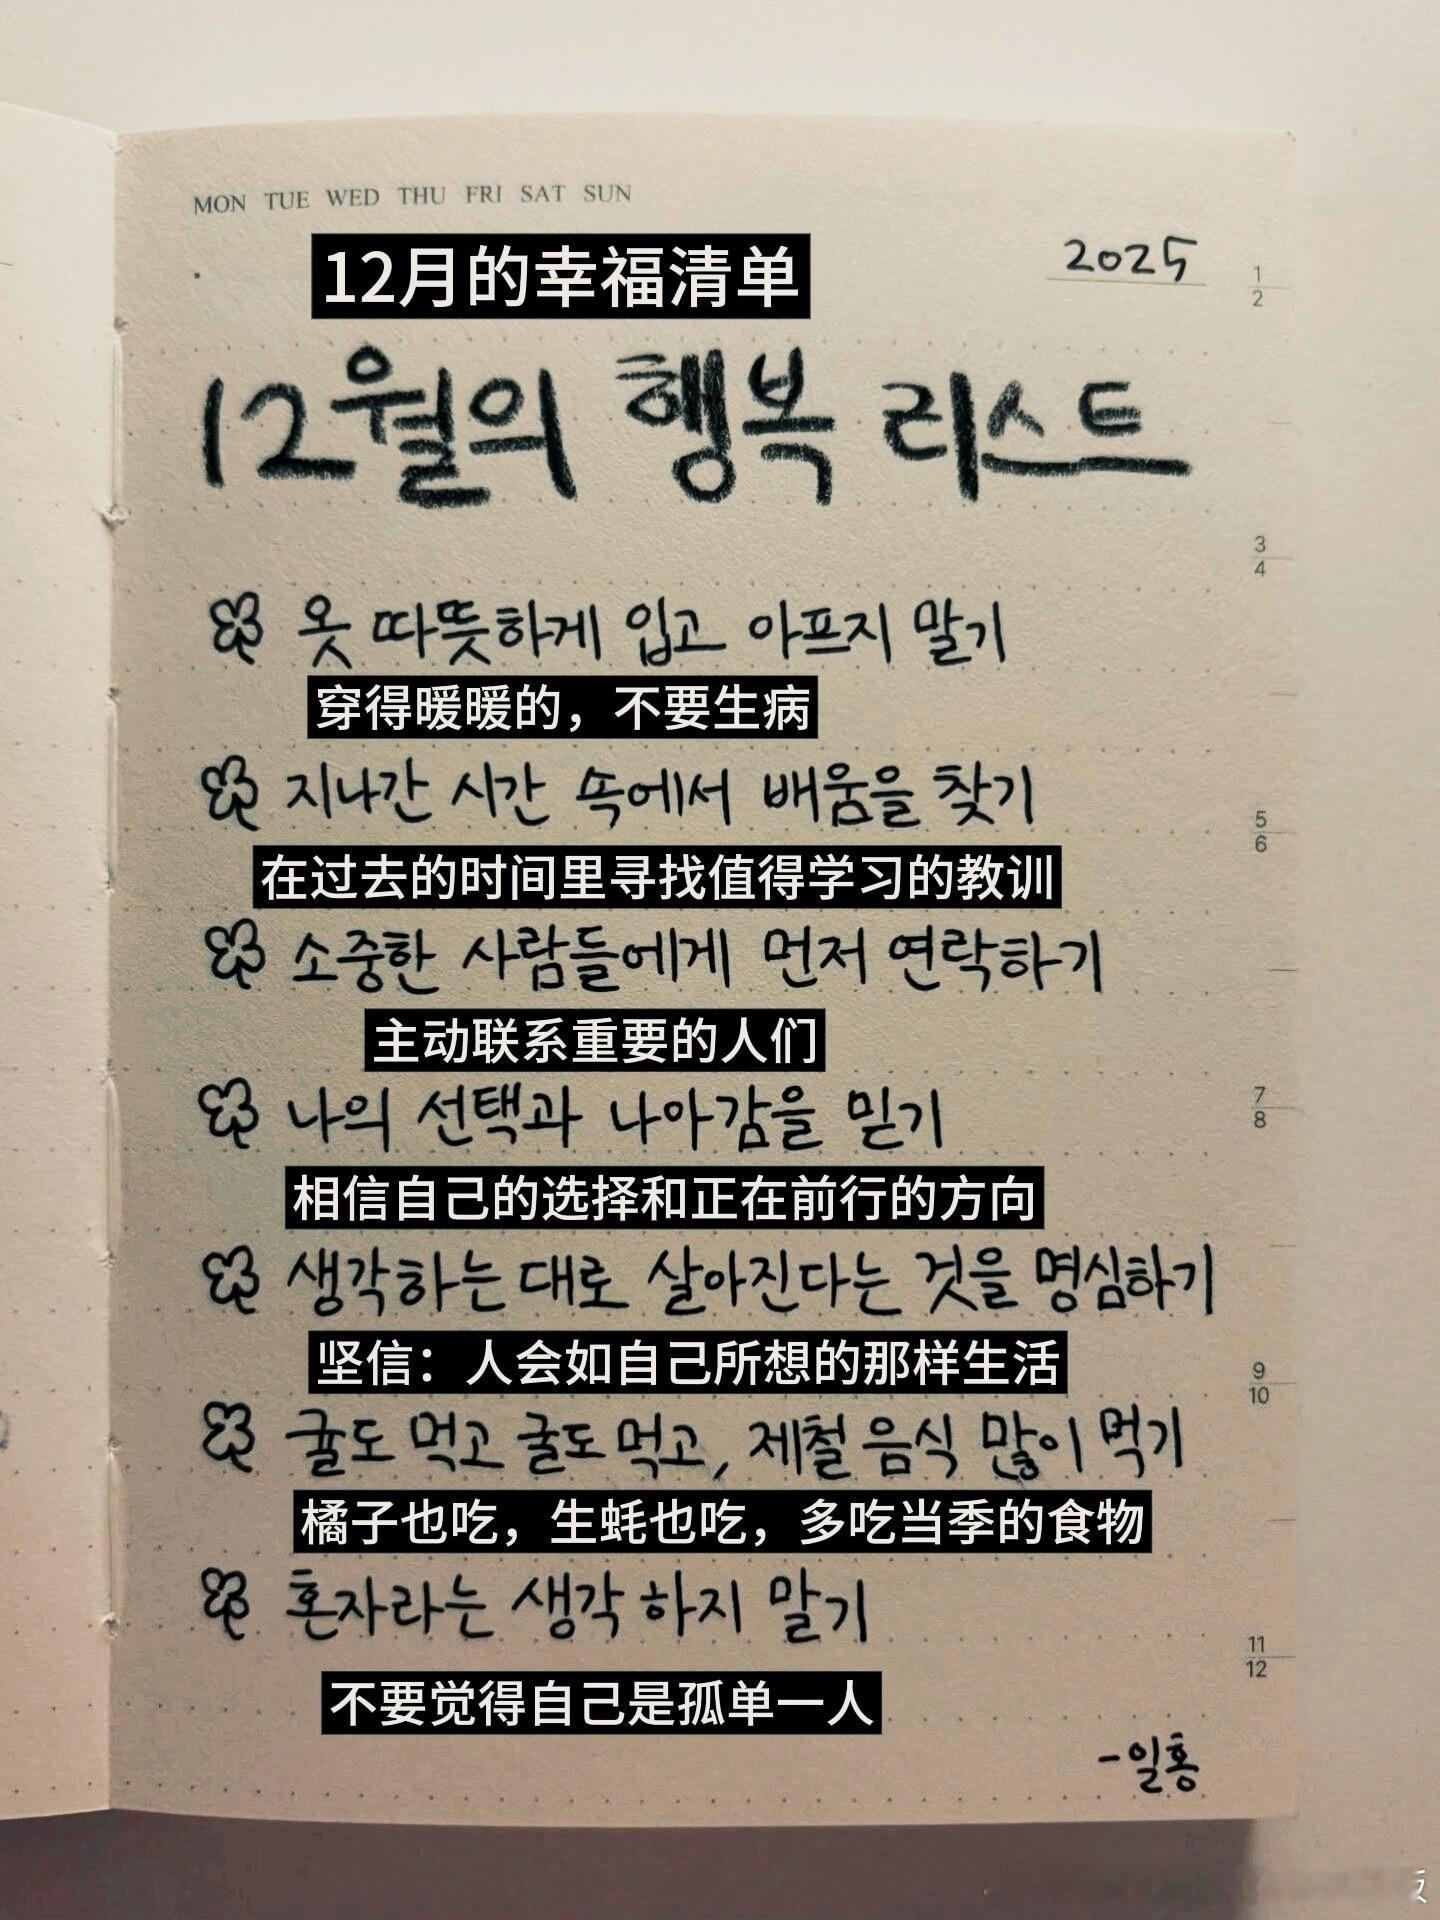 MON TUE WED THU FRI SAT SUN
2025
12月的幸福清单
12월의 행복 리스트
옷 따뜻하게 입고 아프지 말기
穿得暖暖的，不要生病
지나간 시간 속에서 배움을 찾기
在过去的时间里寻找值得学习的教训
소중한 사람들에게 먼저 연락하기
主动联系重要的人们
나의 선택과 나아감을 믿기
相信自己的选择和正在前行的方向
생각하는 대로 살아진다는 것을 명심하기
坚信：人会如自己所想的那样生活
귤도 먹고 굴도 먹고, 제철 음식 많이 먹기
橘子也吃，生蚝也吃，多吃当季的食物
혼자라는 생각 하지 말기
不要觉得自己是孤单一人
-일홍
1
2
3
4
5
6
7
8
9
10
11
12